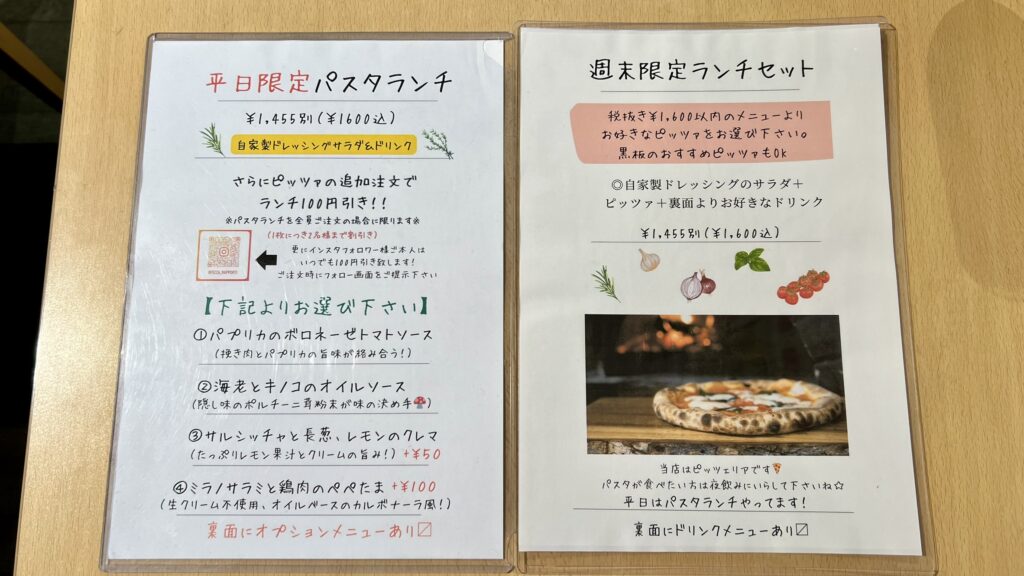 平日限定パスタランチ
¥1,455別(¥1600込)
自家製ドレッシングサラダ&ドリンク
さらにピッツァの追加注文で
ランチ100円引き!!
※パスタランチを全員ご注文の場合に限ります※
(1枚につき2名様まで割引き)
更にインスタフォロワー様ご本人は
いつでも100円引き致します!
ご注文時にフォロー画面をご提示下さい
【下記よりお選び下さい】
①パプリカのボロネーゼトマトソース
(挽き肉とパプリカの旨味が絡み合う!)
②海老とキノコのオイルソース
(隠し味のポルチーニ茸粉末が味の決め手🍄)
③サルシッチャと長葱、レモンのクレマ
(たっぷりレモン果汁とクリームの旨み!) +¥50
④ミラノサラミと鶏肉のペペたま +¥100
(生クリーム不使用、オイルベースのカルボナーラ風!)
裏面にオプションメニューあり〼
週末限定ランチセット
税抜き¥1,600以内のメニューより
お好きなピッツァをお選び下さい。
黒板のおすすめピッツァもOK
◎自家製ドレッシングのサラダ+
ピッツァ+裏面よりお好きなドリンク
¥1,455別(¥1,600込)
当店はピッツェリアです🍕
パスタが食べたい方は夜飲みにいらして下さいね☆
平日はパスタランチやってます!
裏面にドリンクメニューあり〼